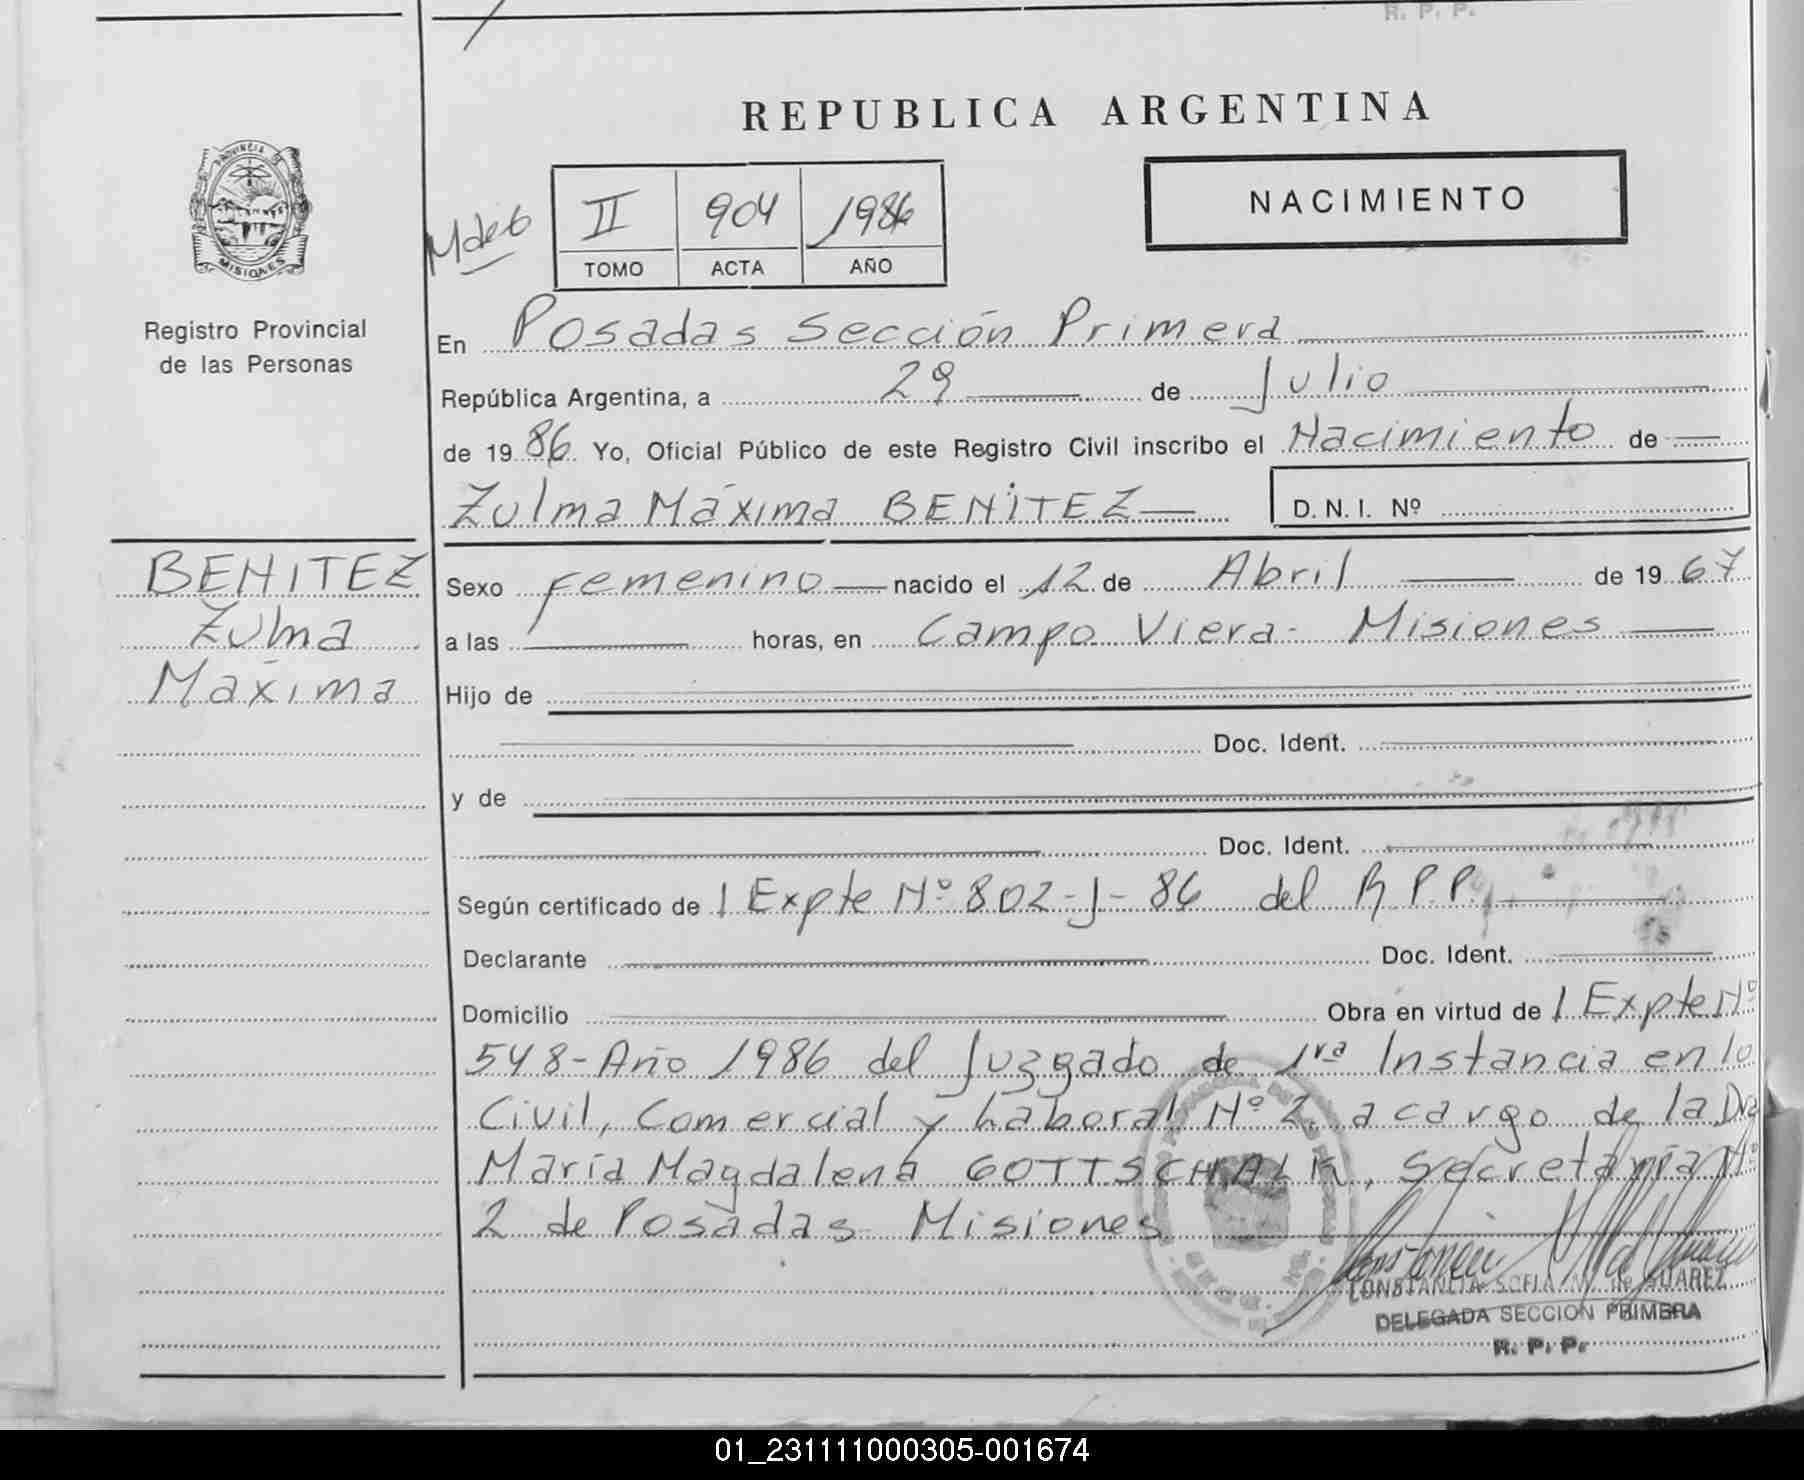 R. P. P.
REPUBLICA ARGENTINA
PROVINCIA DE
MISIONES
Registro Provincial
de las Personas
II 904 1986
TOMO ACTA AÑO
NACIMIENTO
En Posadas Sección Primera
República Argentina, a 29 de Julio
de 1986 Yo, Oficial Público de este Registro Civil inscribo el Nacimiento de
Zulma Máxima BENITEZ D.N.I. Nº
BENITEZ
Zulma
Máxima
Sexo Femenino nacido el 12 de Abril de 1967
a las horas, en Campo Viera - Misiones
Hijo de
Doc. Ident.
y de
Doc. Ident.
Según certificado de 1 Expte Nº 802-J-86 del R.P.P.
Declarante Doc. Ident.
Domicilio Obra en virtud de 1 Expte Nº
548-Año 1986 del Juzgado de 1ra Instancia en lo
Civil, Comercial y Laboral Nº 2, a cargo de la Dra
María Magdalena GOTTSCHALK, Secretaría Nº
2 de Posadas Misiones
CONSTANCIA SOFIA M. de SUAREZ
DELEGADA SECCION PRIMERA
R. P. P.
01_231111000305-001674